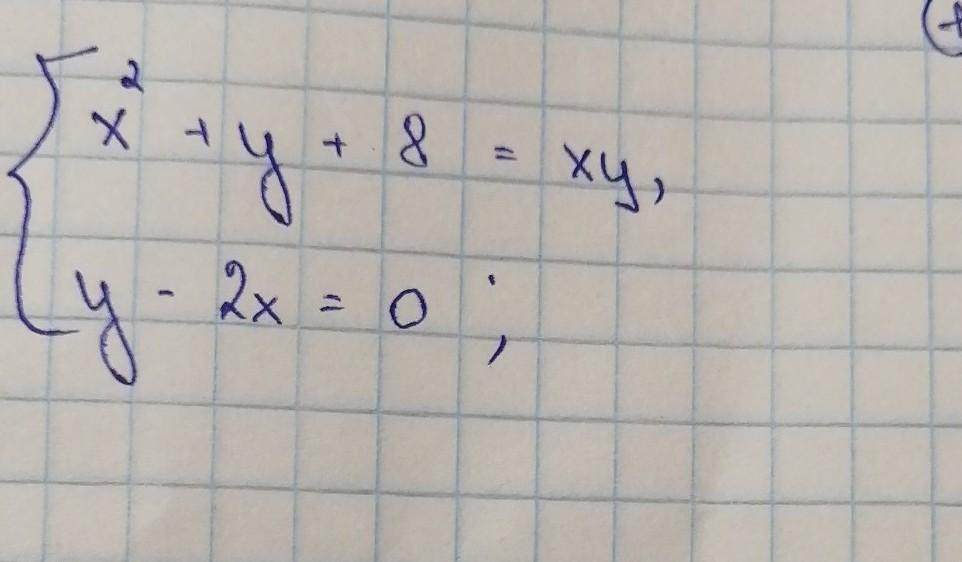 x² + y + 8 = xy,
y - 2x = 0 ;